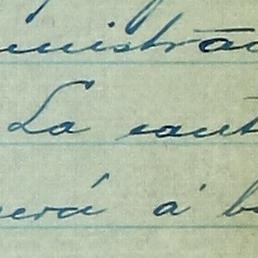 inistra
La cant
verá á b